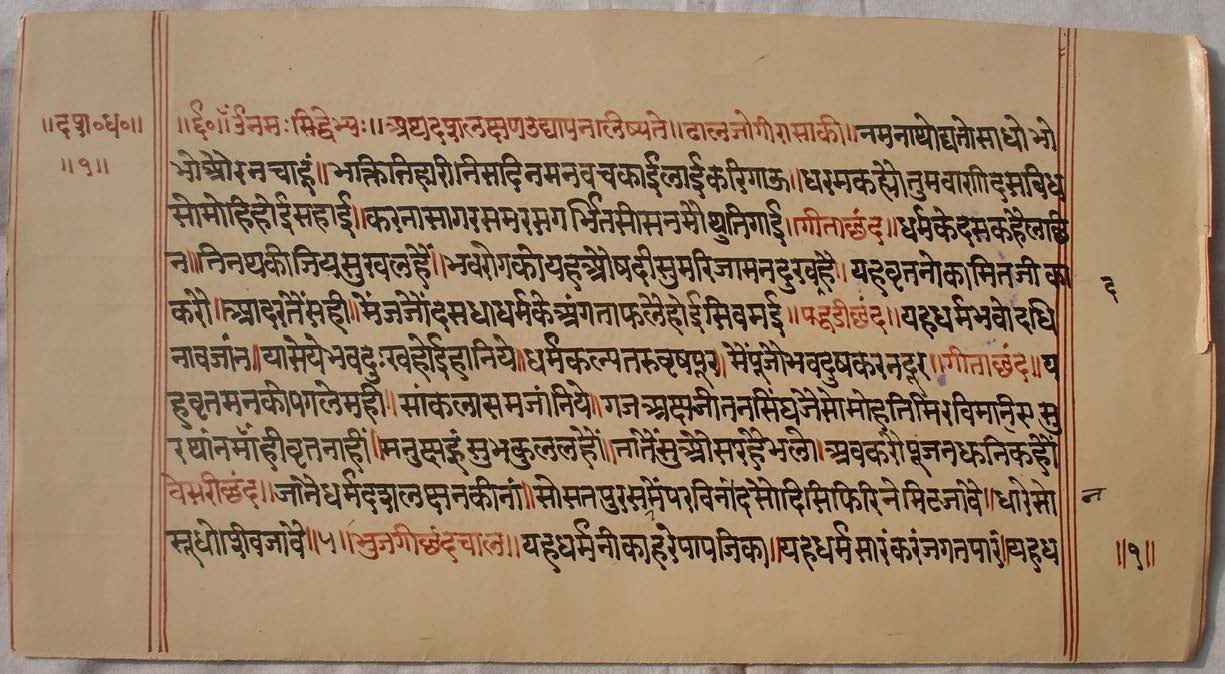 ॥दश॰ध॰॥
॥१॥
॥ई॰॥ॐनमःसिद्धेभ्यः॥अथदशलक्षणउद्यापनालिष्यते॥ढालजोगीरासाकी॥नमनाथोद्यतोसाधोभो
भोऔरनचाहूं॥भक्तितिहारीनिसदिनमनवचकाईलाईकरिगाऊं॥धरमकह्यौतुमवाणीदसबिध
सोमोहिहोईसहाई॥करनासागरसमरसगर्भितसीसनमौथुतिगाई॥गीताछंद॥धर्मकेदसकहैलाछि
न॥तिनथकीजियसुखलहै॥भवरोगकीयहऔषदीसुमरिजामनदुखहै॥यहवृतनोकामितजीका
करौ॥आदरतेंसही॥मैंजजोंदसधाधर्मकेअंगताफलैहोईसिवमई॥पद्धडीछंद॥यहधर्मभवोदधि
नावजांन॥यासेयेभवदुःखहोईहानिये॥धर्मकल्पतरुवृषपूर॥मैंपूजौभवदुषकरनदूर॥गीताछंद॥य
हवृतमनकीपगलेमही॥सांकलासमजांनिये॥गजअक्षजीतनसिंघजैसोमोहतिमिरविमानिए सु
रथांनमांहीवृतनाहीं॥मनुक्षहूंसुभकुललहौं॥तातेंसुऔसरहैभलो॥अबकरौपूजनधुनिकहौं
वेसरीछंद॥जोनेधर्मदशलक्षनकीनां॥सोसतपुरसमेंपरविनांदसोदिसिफिरिनेमिटजावे॥धारेसो
सूधोशिवजावे॥५॥भुजगीछंदचाल॥यहधर्मनीकाहरेपापजिका॥यहधर्मसारंकरंजगतपारं॥यहध
द
न
॥१॥